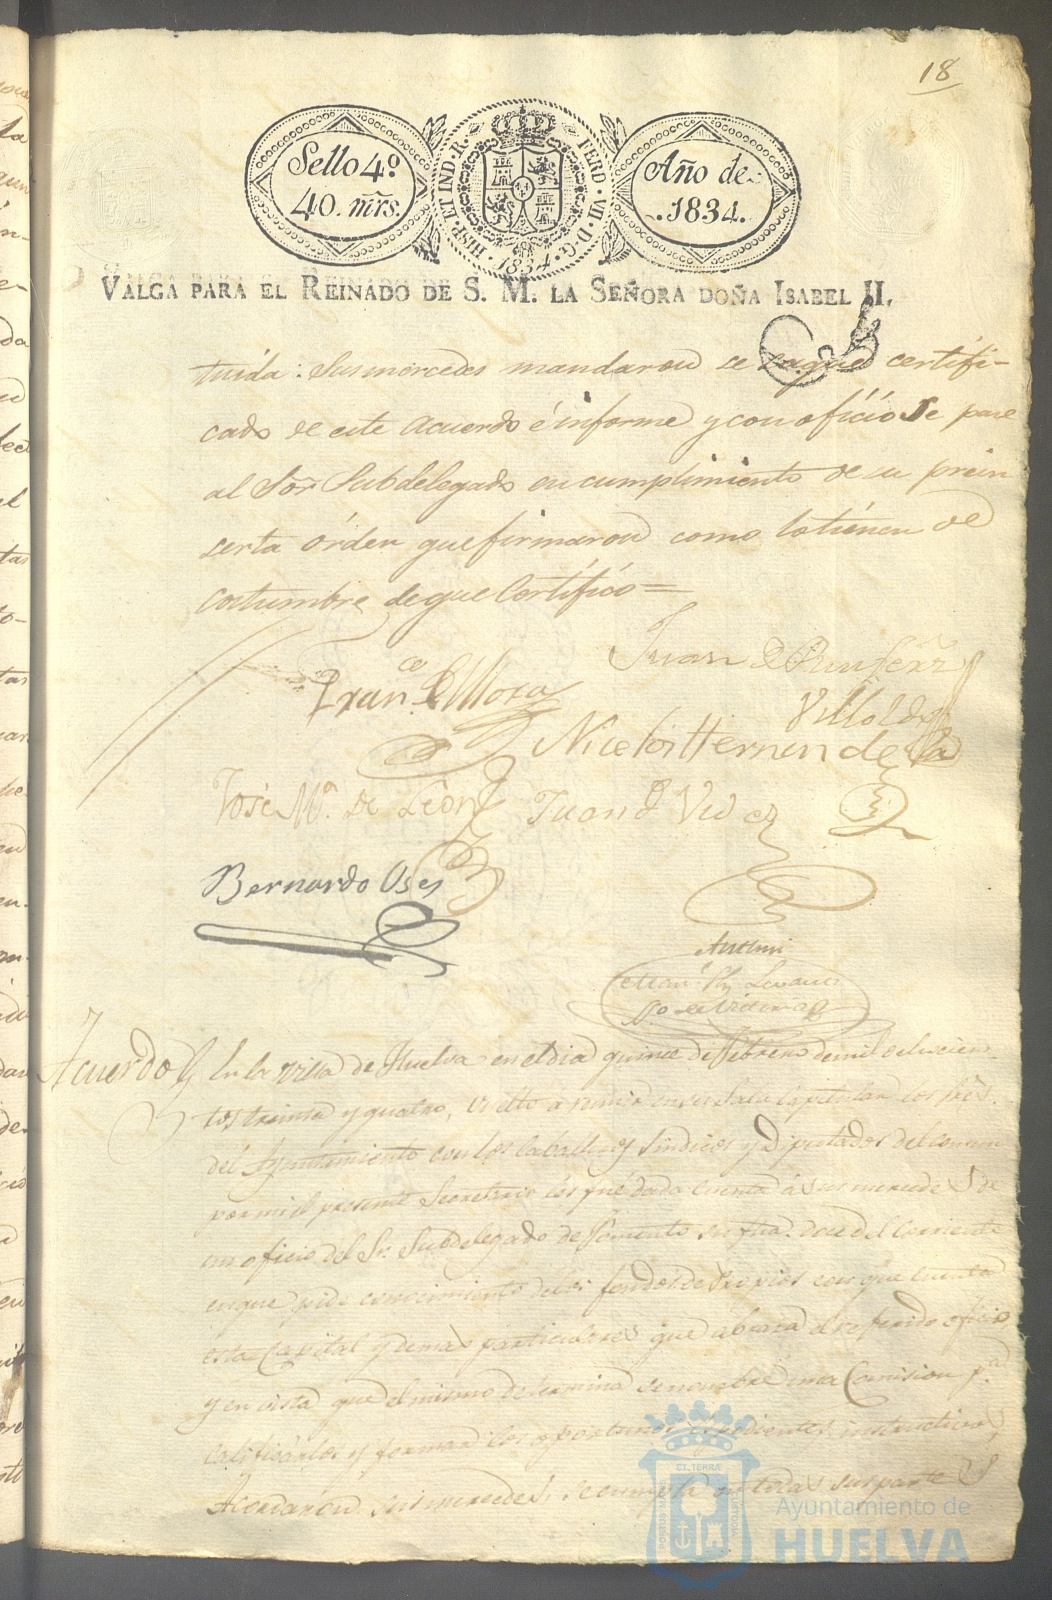 18
Sello 4º
40. mrs.
HISP. ET IND. R. FERD. VII. D. G.
1834
Año de
1834.
VALGA PARA EL REINADO DE S. M. LA SEÑORA DOÑA ISABEL II.
tuida: Sus mercedes mandaron se saque certifi-
cado de este Acuerdo é informe y con oficio se pase
al Sor Subdelegado en cumplimiento de su prein
serta órden que firmaron como lo tienen de
costumbre de que Certifico =
Juan
Franco de Mora
Villoldo
José Mª. de León
Juan Vides
Bernardo Oses
Antemi
Acuerdo
En la Villa de Huelva en el dia quince de Febrero de mil ochocien
tos treinta y quatro, vuelto a reunir en su Sala Capitular los Sres.
del Ayuntamiento con los Caballeros Sindicos y Diputados del comun
por mi el presente Secretario les fué dada cuenta á sus mercedes de
un oficio del Sr. Subdelegado de Fomento su fha. doce del corriente
en que pide conocimiento de los fondos de Propios con que cuenta
esta Capital y demas particulares que abraza el referido oficio
y en vista que el mismo determina se nombre una Comision pa.
calificarlos y formar los oportunos espedientes instructivos
Acordaron sus mercedes, se cumpla en todas sus partes
Ayuntamiento de
HUELVA